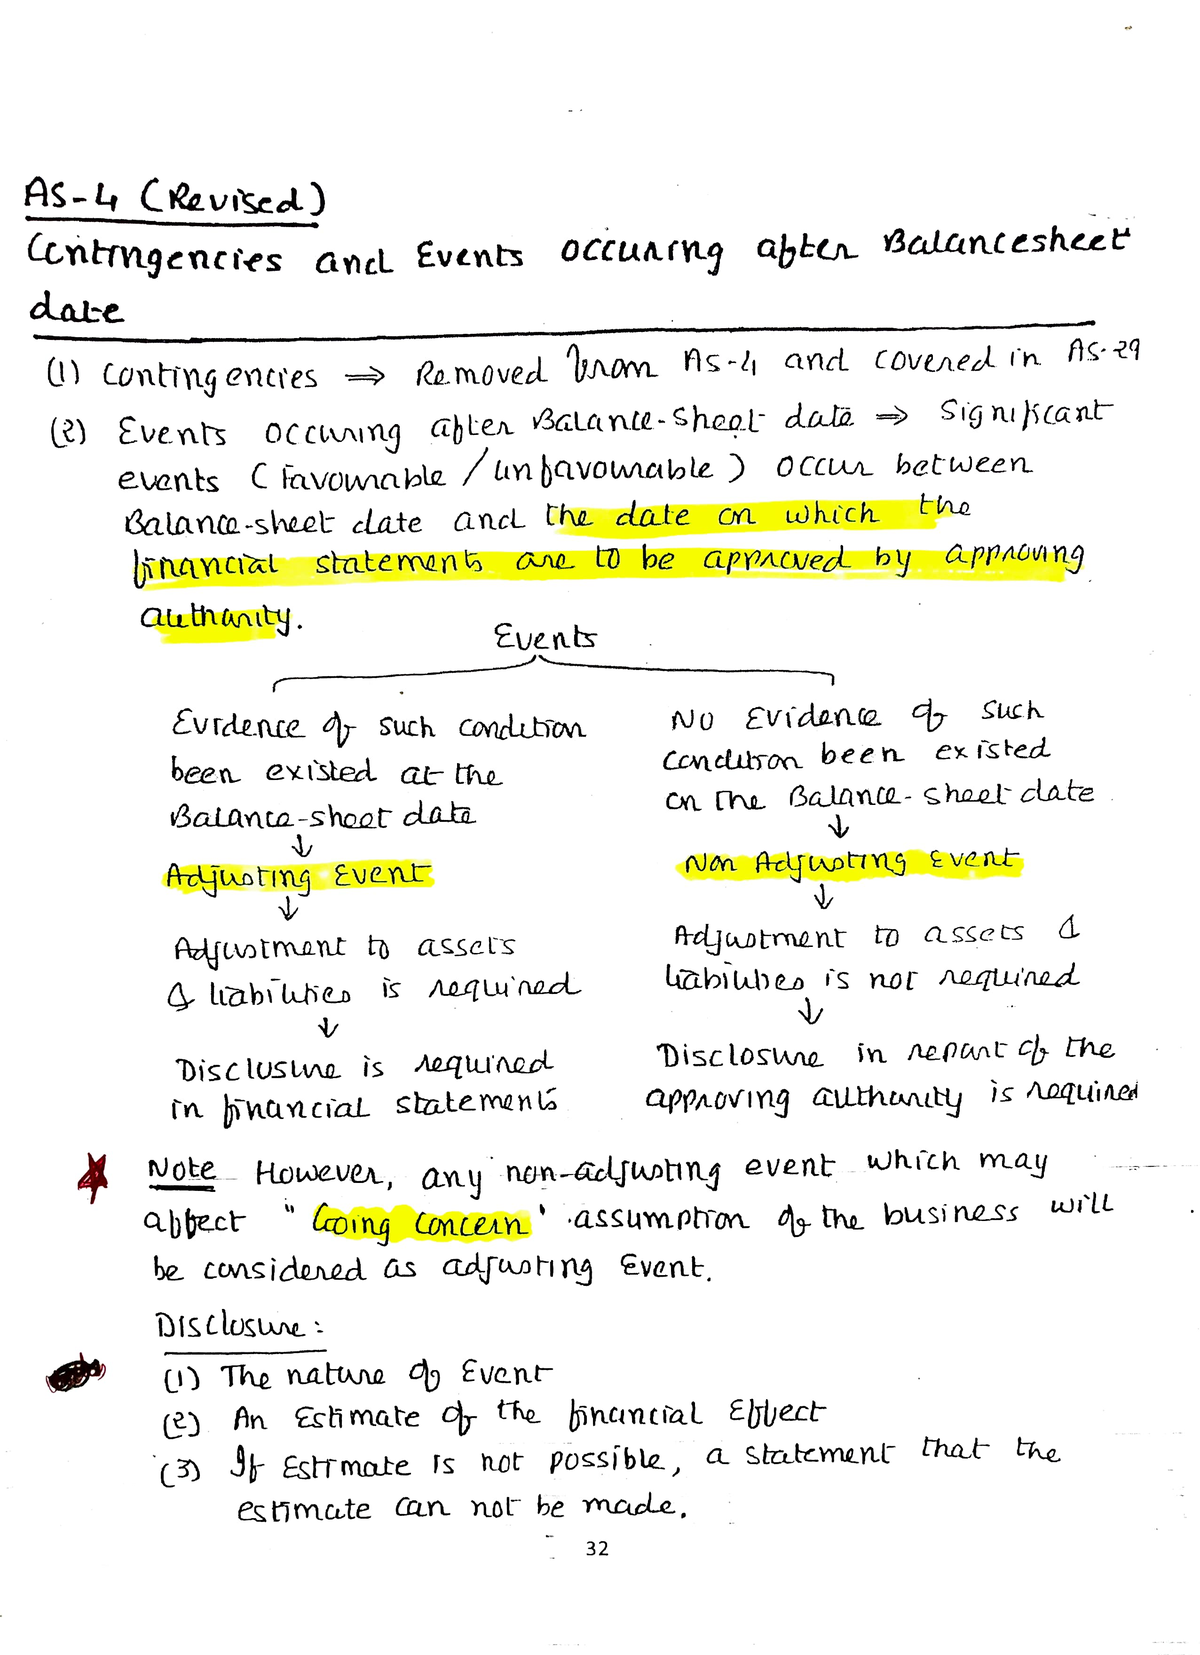 AS-4 (Revised)
Contingencies and Events occuring after Balancesheet
date
(1) Contingencies ⇒ Removed from AS-4 and covered in AS-29
(2) Events occuring after Balance-Sheet date ⇒ Significant
events (Favourable / unfavourable) occur between
Balance-sheet date and the date on which the
financial statements are to be approved by approving
authority.
Events
Evidence of such condition
been existed at the
Balance-sheet date
↓
Adjusting Event
↓
Adjustment to assets
& liabilities is required
↓
Disclusure is required
in financial statements
No Evidence of such
condition been existed
on the Balance-sheet date
↓
Non Adjusting Event
↓
Adjustment to assets &
liabilities is not required
↓
Disclosure in report of the
approving authority is required
Note However, any non-adjusting event which may
affect "Going Concern' assumption of the business will
be considered as adjusting Event.
Disclusure :
(1) The nature of Event
(2) An Estimate of the financial Effect
(3) If Estimate is not possible, a statement that the
estimate can not be made.
32